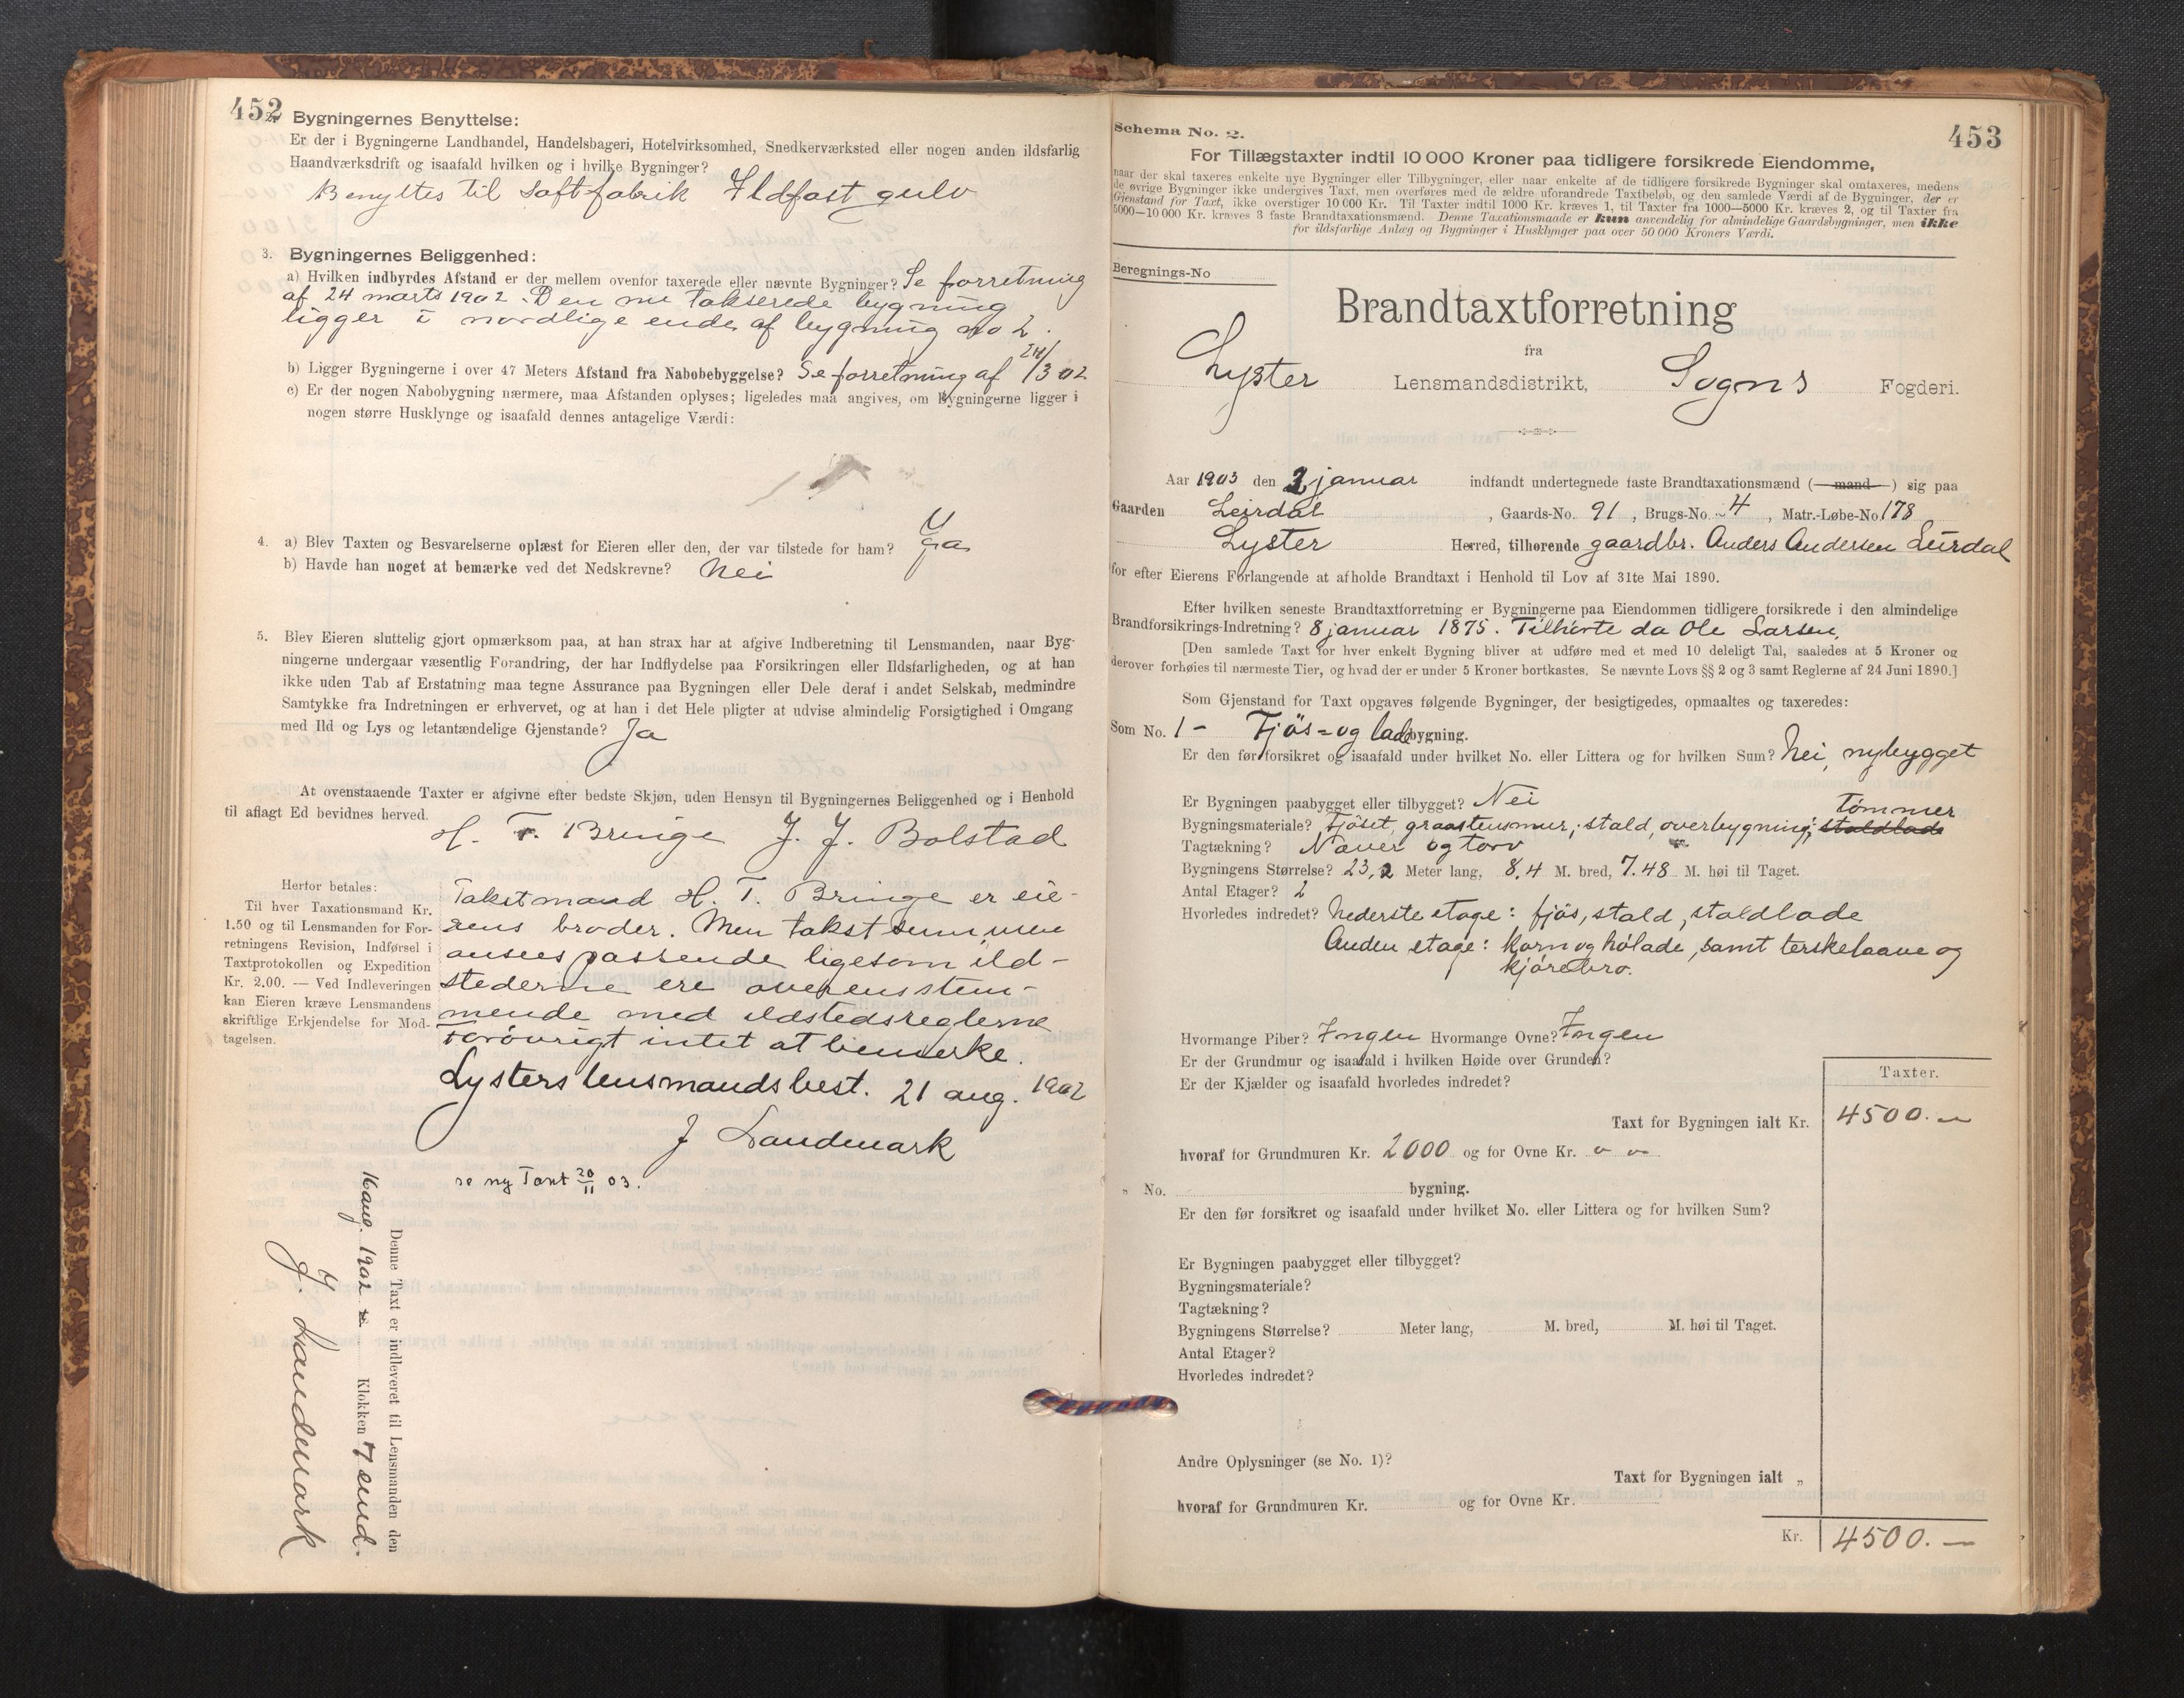 452
2. Bygningernes Benyttelse:
Er der i Bygningerne Landhandel, Handelsbageri, Hotelvirksomhed, Snedkerværksted eller nogen anden ildsfarlig
Haandværksdrift og isaafald hvilken og i hvilke Bygninger?
Benyttes til saftfabrik Ildfast gulv
3. Bygningernes Beliggenhed:
a) Hvilken indbyrdes Afstand er der mellem ovenfor taxerede eller nævnte Bygninger? Se forretning
af 24 marts 1902. Den nu takserede bygning
ligger i nordlige ende af bygning no 2.
b) Ligger Bygningerne i over 47 Meters Afstand fra Nabobebyggelse? Se forretning af 24/3 02
c) Er der nogen Nabobygning nærmere, maa Afstanden oplyses; ligeledes maa angives, om Bygningerne ligger i
nogen større Husklynge og isaafald dennes antagelige Værdi:
4. a) Blev Taxten og Besvarelserne oplæst for Eieren eller den, der var tilstede for ham? Ja
b) Havde han noget at bemærke ved det Nedskrevne? Nei
5. Blev Eieren sluttelig gjort opmærksom paa, at han strax har at afgive Indberetning til Lensmanden, naar Byg-
ningerne undergaar væsentlig Forandring, der har Indflydelse paa Forsikringen eller Ildsfarligheden, og at han
ikke uden Tab af Erstatning maa tegne Assurance paa Bygningen eller Dele deraf i andet Selskab, medmindre
Samtykke fra Indretningen er erhvervet, og at han i det Hele pligter at udvise almindelig Forsigtighed i Omgang
med Ild og Lys og letantændelige Gjenstande? Ja
At ovenstaaende Taxter er afgivne efter bedste Skjøn, uden Hensyn til Bygningernes Beliggenhed og i Henhold
til aflagt Ed bevidnes herved.
H. T. Bringe J. J. Bolstad
Herfor betales:
Til hver Taxationsmand Kr.
1.50 og til Lensmanden for For-
retningens Revision, Indførsel i
Taxtprotokollen og Expedition
Kr. 2.00. — Ved Indleveringen
kan Eieren kræve Lensmandens
skriftlige Erkjendelse for Mod-
tagelsen.
Takstmand H. T. Bringe er eie-
rens broder. Men takstsummen
ansees passende ligesom ild-
stederne ere overensstem-
mende med ildstedsreglerne
Forøvrigt intet at bemerke.
Lysters lensmandsbest. 21 aug. 1902
J Landmark
se ny Taxt 20/11 03.
Denne Taxt er indleveret til Lensmanden den
16 aug. 1902 Klokken 7 emd.
J. Landmark
453
Schema No. 2.
For Tillægstaxter indtil 10 000 Kroner paa tidligere forsikrede Eiendomme,
naar der skal taxeres enkelte nye Bygninger eller Tilbygninger, eller naar enkelte af de tidligere forsikrede Bygninger skal omtaxeres, medens
de øvrige Bygninger ikke undergives Taxt, men overføres med de ældre uforandrede Taxtbeløb, og den samlede Værdi af de Bygninger, der er
Gjenstand for Taxt, ikke overstiger 10 000 Kr. Til Taxter indtil 1000 Kr. kræves 1, til Taxter fra 1000—5000 Kr. kræves 2, og til Taxter fra
5000—10 000 Kr. kræves 3 faste Brandtaxationsmænd. Denne Taxationsmaade er kun anvendelig for almindelige Gaardsbygninger, men ikke
for ildsfarlige Anlæg og Bygninger i Husklynger paa over 50 000 Kroners Værdi.
Beregnings-No
Brandtaxtforretning
fra
Lyster Lensmandsdistrikt, Sogns Fogderi.
Aar 1903 den 2 januar indfandt undertegnede faste Brandtaxationsmænd (mand) sig paa
Gaarden Leirdal, Gaards-No. 91, Brugs-No. 4, Matr.-Løbe-No 178
Lyster Herred, tilhørende gaardbr. Anders Andersen Leirdal
for efter Eierens Forlangende at afholde Brandtaxt i Henhold til Lov af 31te Mai 1890.
Efter hvilken seneste Brandtaxtforretning er Bygningerne paa Eiendommen tidligere forsikrede i den almindelige
Brandforsikrings-Indretning? 8 januar 1875. Tilhørte da Ole Larsen.
[Den samlede Taxt for hver enkelt Bygning bliver at udføre med et med 10 deleligt Tal, saaledes at 5 Kroner og
derover forhøies til nærmeste Tier, og hvad der er under 5 Kroner bortkastes. Se nævnte Lovs §§ 2 og 3 samt Reglerne af 24 Juni 1890.]
Som Gjenstand for Taxt opgaves følgende Bygninger, der besigtigedes, opmaaltes og taxeredes:
Som No. 1 - Fjøs- og ladebygning.
Er den før forsikret og isaafald under hvilket No. eller Littera og for hvilken Sum? Nei, nybygget
Er Bygningen paabygget eller tilbygget? Nei
Bygningsmateriale? Fjøset, graastensmur; stald, overbygning: staldlade tømmer
Tagtækning? Næver og torv
Bygningens Størrelse? 23,2 Meter lang, 8,4 M. bred, 7.48 M. høi til Taget.
Antal Etager? 2
Hvorledes indredet? Nederste etage: fjøs, stald, staldlade
Anden etage: korn og hølade, samt terskelaave og
kjørebro.
Hvormange Piber? Ingen Hvormange Ovne? Ingen
Er der Grundmur og isaafald i hvilken Høide over Grunden?
Er der Kjælder og isaafald hvorledes indredet?
Taxter.
Taxt for Bygningen ialt Kr. 4500.—
hvoraf for Grundmuren Kr. 2000 og for Ovne Kr.
„ No. bygning.
Er den før forsikret og isaafald under hvilket No. eller Littera og for hvilken Sum?
Er Bygningen paabygget eller tilbygget?
Bygningsmateriale?
Tagtækning?
Bygningens Størrelse? Meter lang, M. bred, M. høi til Taget.
Antal Etager?
Hvorledes indredet?
Andre Oplysninger (se No. 1)?
Taxt for Bygningen ialt „
hvoraf for Grundmuren Kr. og for Ovne Kr.
Kr. 4500.—